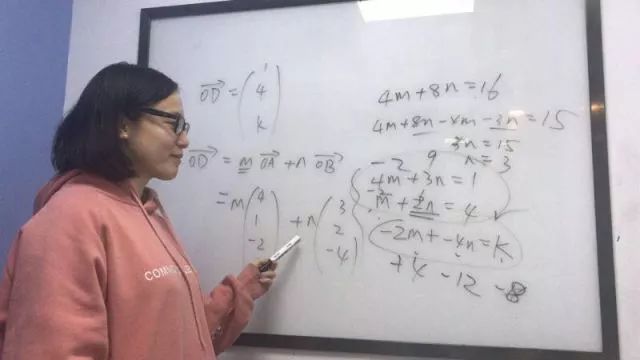 OD = (1 4 k)
OD = m OA + n OB
= m (4 1 -2) + n (3 2 -4)
4m+8n=16
4m+8n-4m-3n=15
n=3
-2 9
4m+3n=1
m+2n=4
-2m+-4n=k
+4 -12 -8